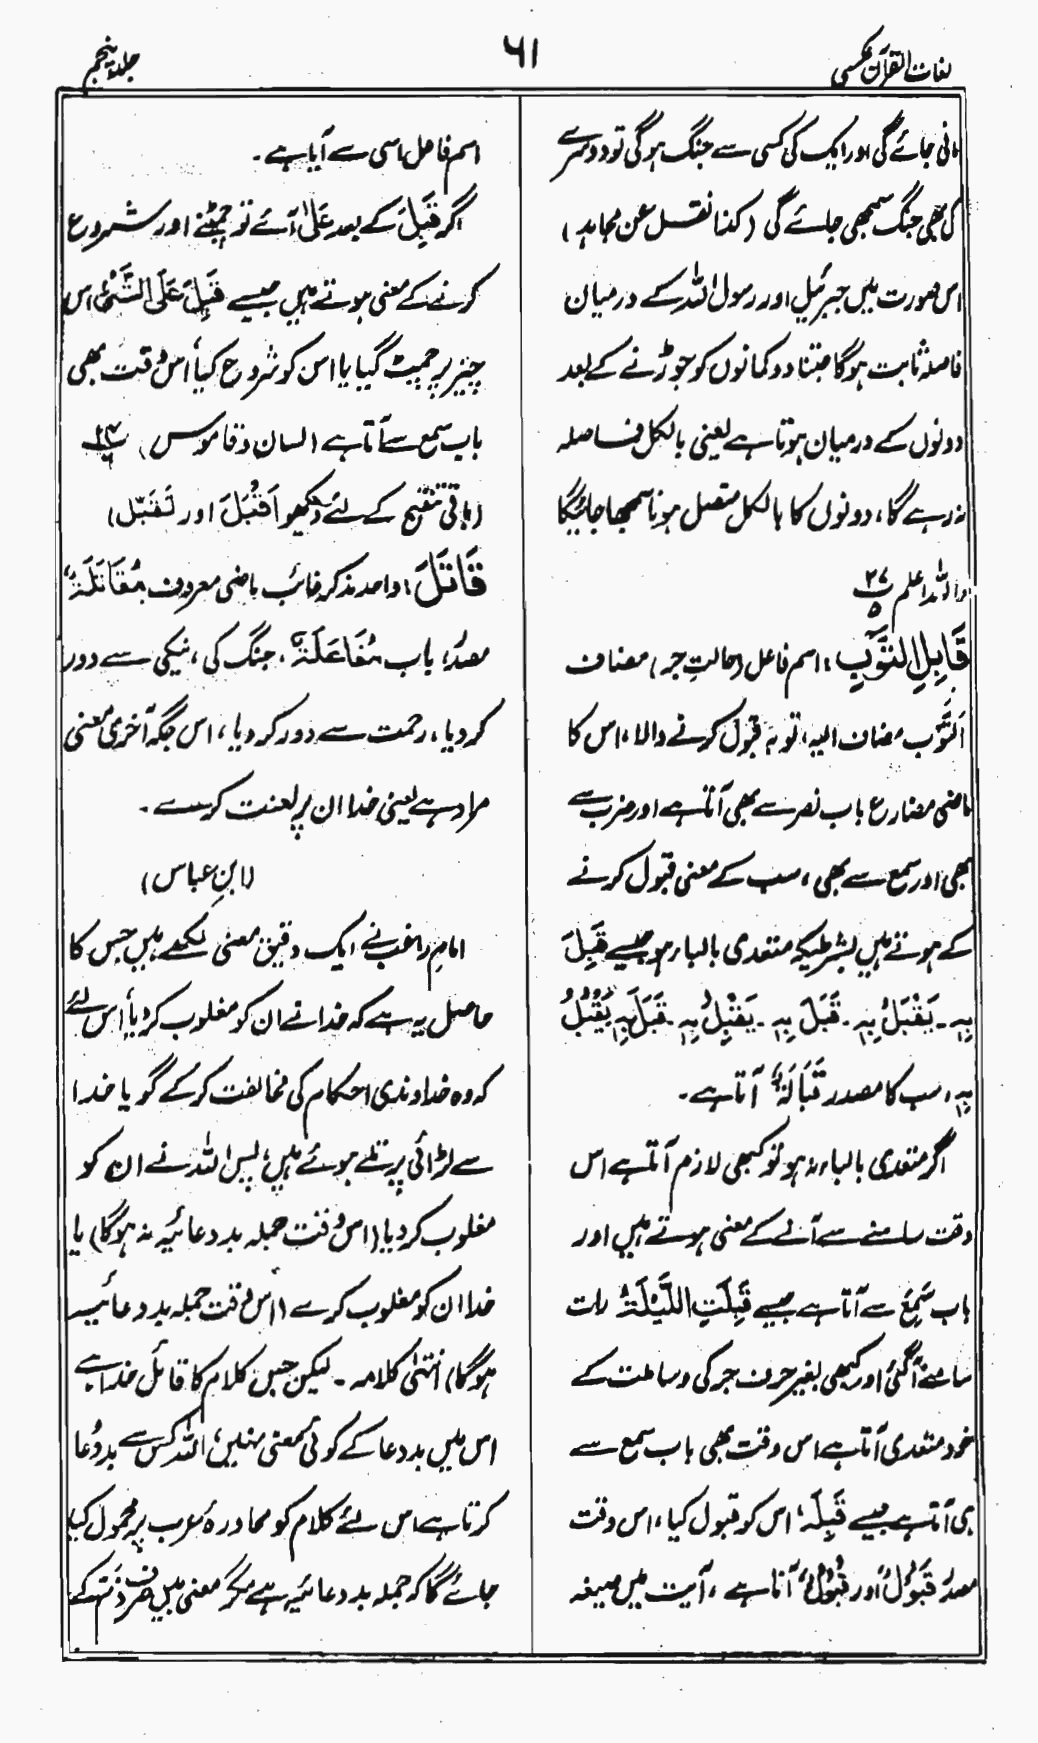 لغات القرآن عکسی
۶۱
جلد پنجم
مانی جائے گی اور ایک کی کسی سے جنگ ہوگی تو دوسرے
کی بھی جنگ سمجھی جائے گی (کذا نقل عن مجاہد)
اس صورت میں جبرئیل اور رسول اللہ کے درمیان
فاصلہ ثابت ہوگا جتنا دو کمانوں کو جوڑنے کے بعد
دونوں کے درمیان ہوتا ہے یعنی بالکل فاصلہ
نہ رہے گا، دونوں کا بالکل متصل ہونا سمجھا جائیگا
واللہ اعلم ۲۷/۵
قَابِلِ التَّوْبِ، اسم فاعل (حالتِ جر) مضاف
اَلتَّوْبِ مضاف الیہ، توبہ قبول کرنے والا، اس کا
ماضی مضارع باب نصر سے بھی آتا ہے اور ضرب سے
بھی اور سمع سے بھی، سب کے معنی قبول کرنے
کے ہوتے ہیں بشرطیکہ متعدی بالباء ہو جیسے قَبِلَ
بِہٖ۔ یَقْبَلُ بِہٖ۔ قَبَلَ بِہٖ۔ یَقْبِلُ بِہٖ۔ قَبَلَ بِہٖ یَقْبُلُ
بِہٖ، سب کا مصدر قَبَالَۃٌ آتا ہے۔
اگر متعدی بالباء نہ ہو تو کبھی لازم آتا ہے اس
وقت سامنے سے آنے کے معنی ہوتے ہیں اور
باب سَمِعَ سے آتا ہے جیسے قَبِلَتِ اللَّیْلَۃُ رات
سامنے آگئی اور کبھی بغیر حرف جر کی وساطت کے
خود متعدی آتا ہے اس وقت بھی باب سمع سے
ہی آتا ہے جیسے قَبِلَہٗ اس کو قبول کیا، اس وقت
مصدر قَبُوْلٌ اور قُبُوْلٌ آتا ہے، آیت میں صیغہ
اسم فاعل اسی سے آیا ہے۔
اگر قَبِلَ کے بعد عَلٰی آئے تو چمٹنے اور شروع
کرنے کے معنی ہوتے ہیں جیسے قَبِلَ عَلَی الشَّیْءِ اس
چیز پر چمٹ گیا یا اس کو شروع کیا، اس وقت بھی
باب سمع سے آتا ہے (لسان و قاموس) ۲۴/۶
(باقی تنقیح کے لئے دیکھو اَقْبَلَ اور تَقَبَّلَ)
قَاتَلَ، واحد مذکر غائب ماضی معروف مُقَاتَلَۃٌ
مصدر، باب مُفَاعَلَۃٌ، جنگ کی، نیکی سے دور
کردیا، رحمت سے دور کردیا، اس جگہ آخری معنی
مراد ہے یعنی خدا ان پر لعنت کرے۔
(ابنِ عباس)
امام راغب نے ایک دقیق معنی لکھے ہیں جس کا
حاصل یہ ہے کہ خدا نے ان کو مغلوب کردیا، اس لئے
کہ وہ خداوندی احکام کی مخالفت کرکے گویا خدا
سے لڑائی پر تلے ہوئے ہیں، پس اللہ نے ان کو
مغلوب کردیا (اس وقت جملہ بددعائیہ نہ ہوگا) یا
خدا ان کو مغلوب کرے (اس وقت جملہ بددعائیہ
ہوگا) انتہیٰ کلامہ۔ لیکن جس کلام کا قائل خدا ہے
اس میں بددعا کے کوئی معنی نہیں، اللہ کس سے بددُعا
کرتا ہے اس لئے کلام کو محاورۂ عرب پر محمول کیا
جائے گا کہ جملہ بددعائیہ ہے مگر معنی میں صرف ذمت کے